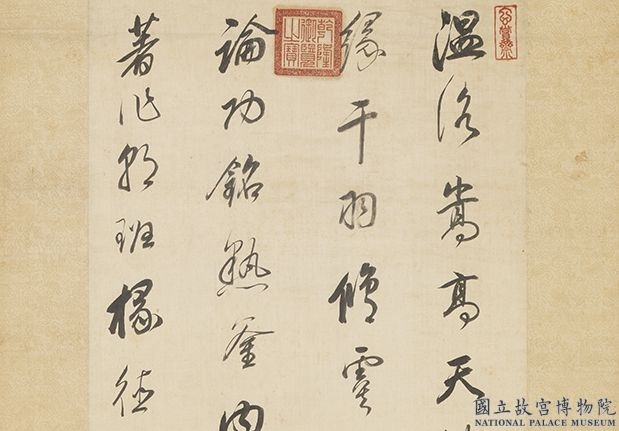 溫洛嵩高天
緣干羽
論功銘熟釜內
著作班椽
乾隆御覽之寶
國立故宮博物院
NATIONAL PALACE MUSEUM